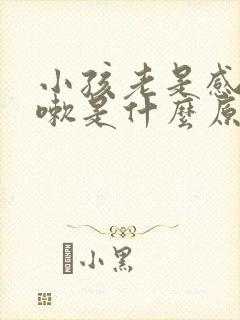 小孩老是感
嗽是什麼原
小黑